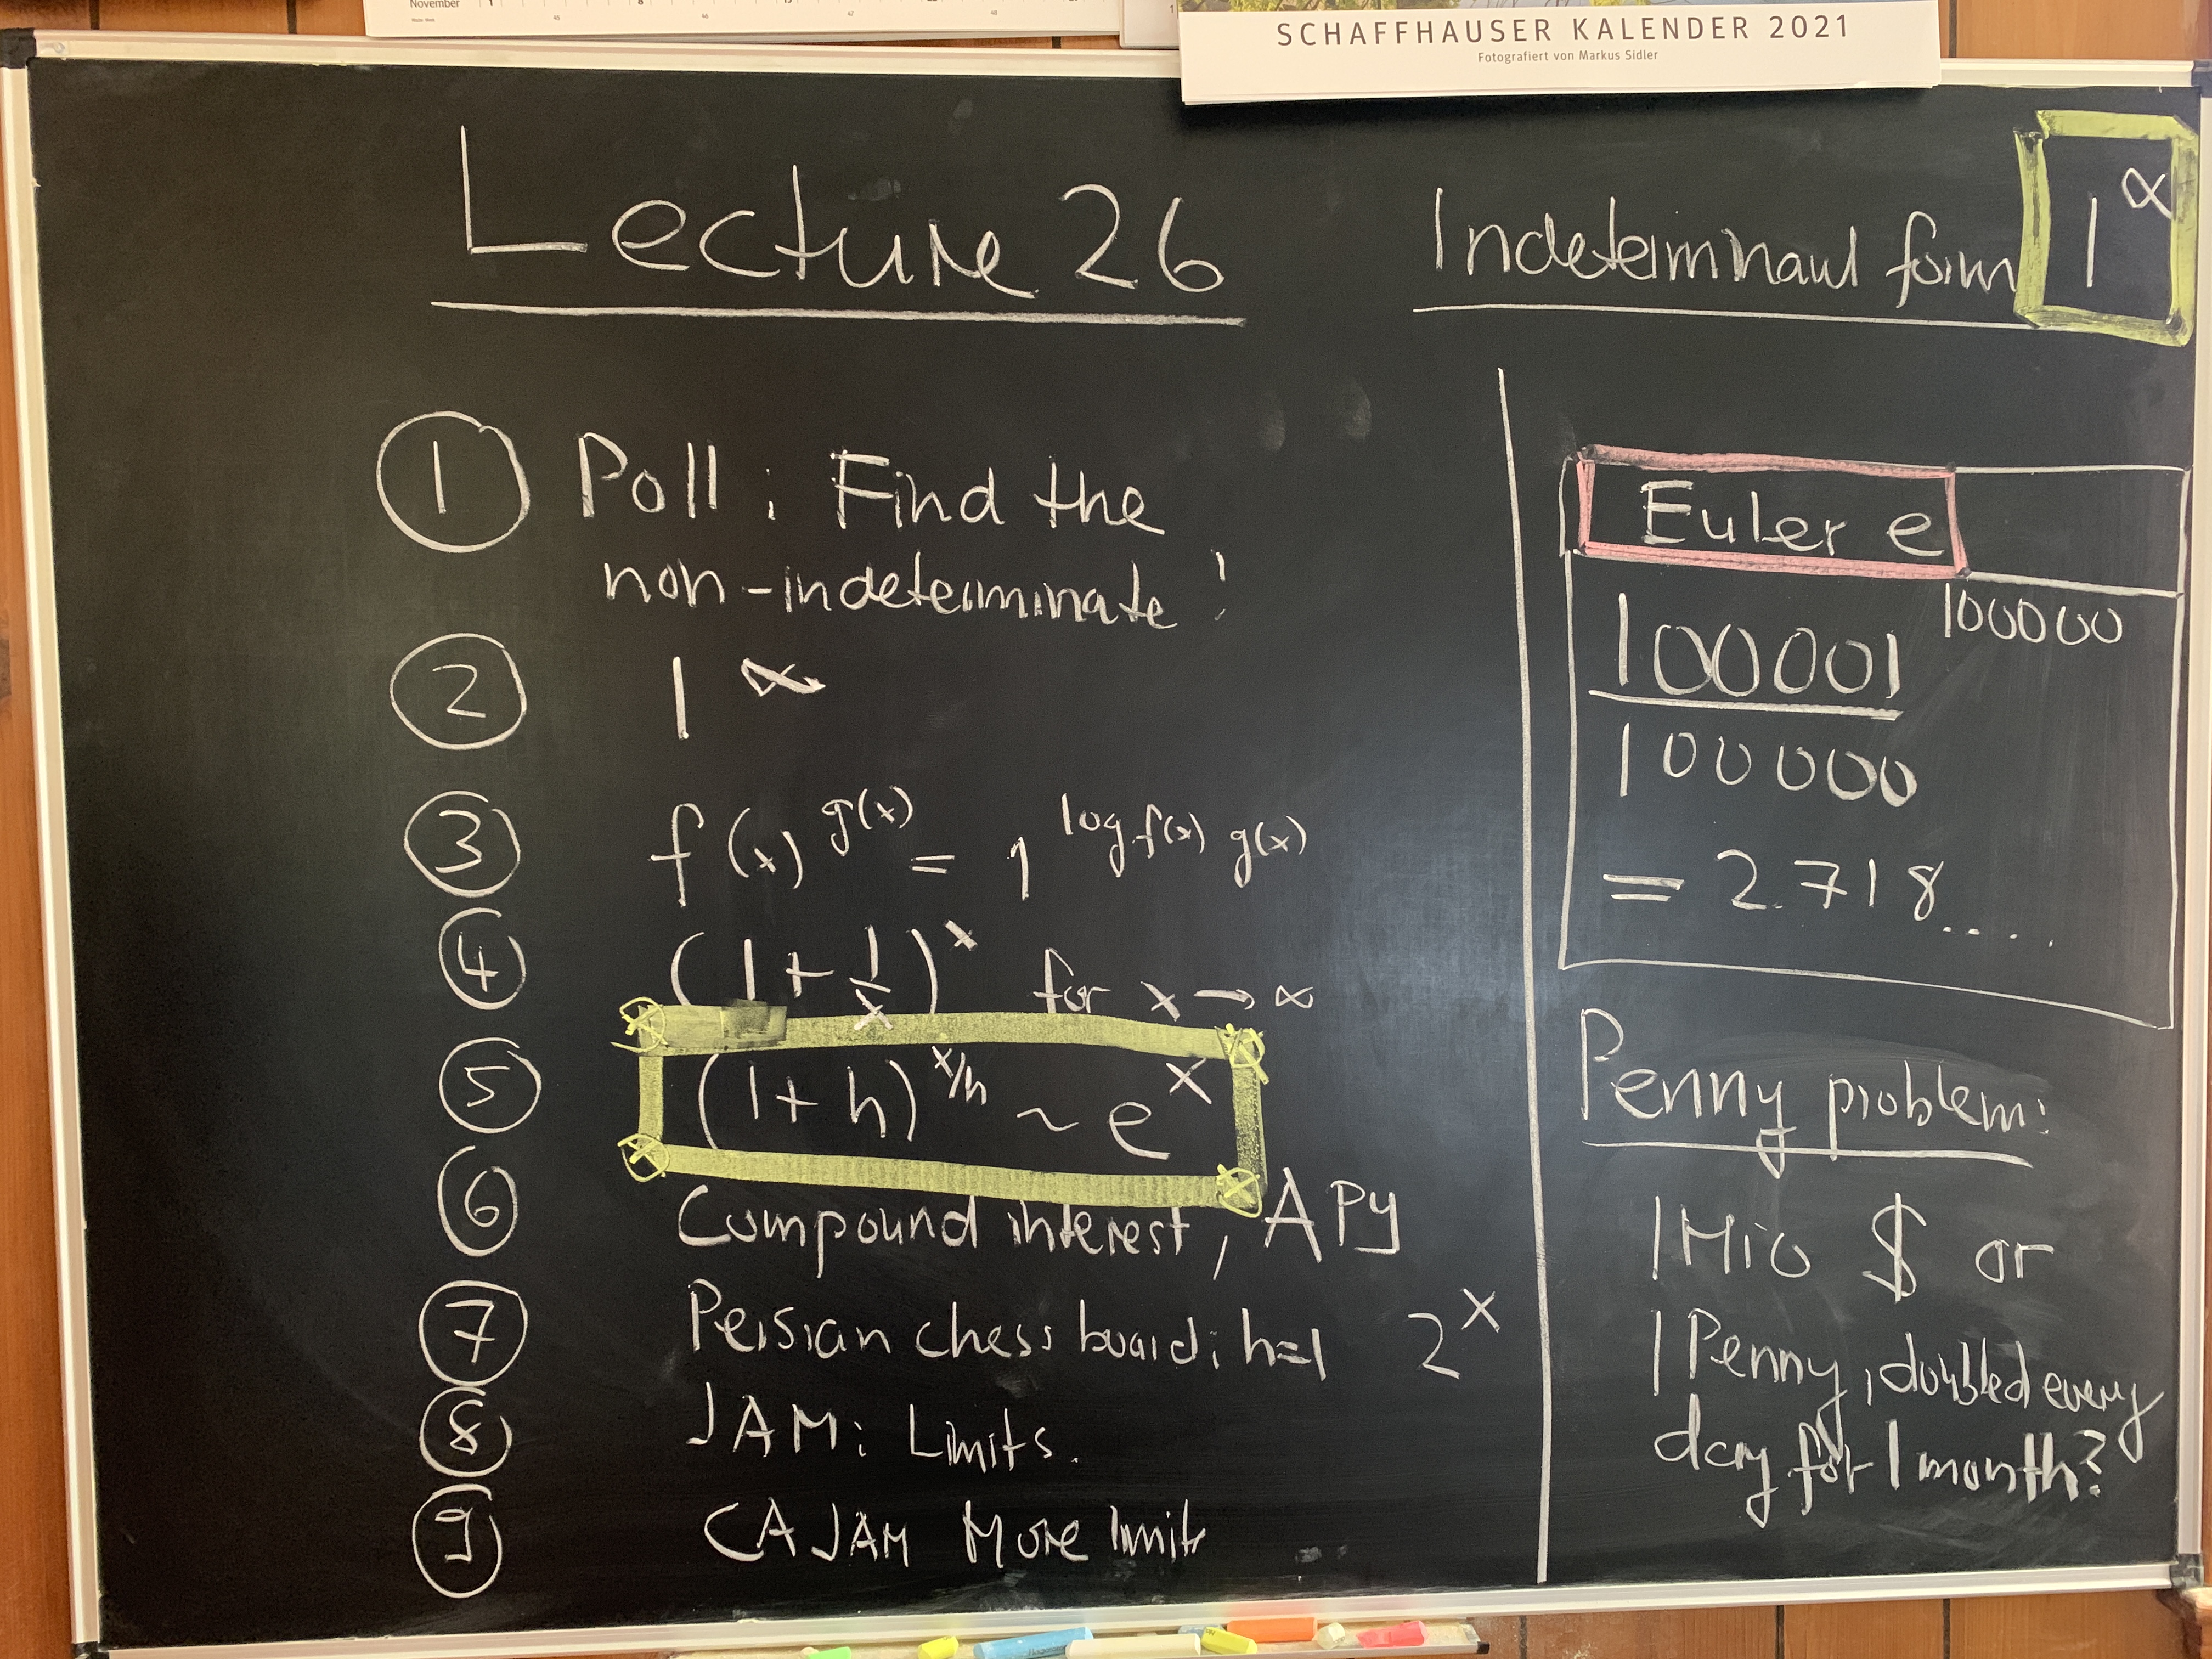 November 1 8
45 46 47 48
SCHAFFHAUSER KALENDER 2021
Fotografiert von Markus Sidler
Lecture 26
Indeterminant form 1^∞
① Poll: Find the
non-indeterminate!
② 1^∞
③ f(x)^g(x) = 1^log f(x) g(x)
④ (1 + 1/x)^x for x → ∞
⑤ (1+h)^x/h ~ e^x
⑥ Compound interest, APY
⑦ Persian chess board: h=1 2^x
⑧ JAM: Limits.
⑨ CAJAM More limits
Euler e
100001 100000
100000
= 2.718.....
Penny problem:
1 Mio $ or
1 Penny, doubled every
day for 1 month?